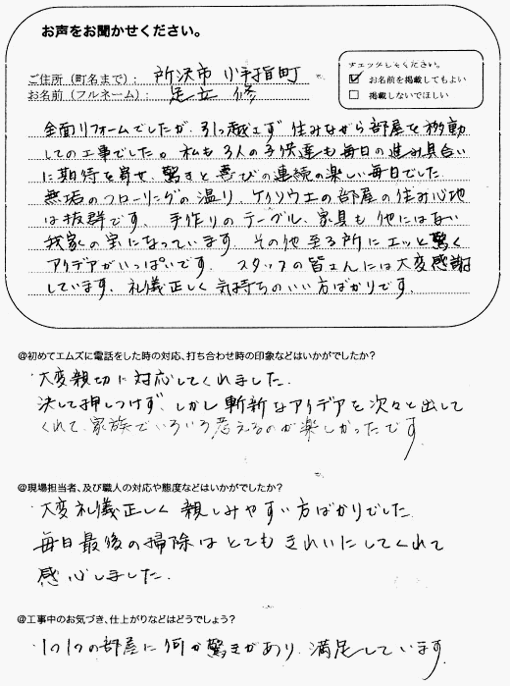 お声をお聞かせください。
チェックしてください。
ご住所（町名まで）： 所沢市 小手指町
☑ お名前を掲載してもよい
お名前（フルネーム）： 足立 修
□ 掲載しないでほしい
全面リフォームでしたが、引っ越さず 住みながら部屋を移動
しての工事でした。私も3人の子供達も毎日の進み具合い
に期待を寄せ、驚きと喜びの連続の楽しい毎日でした。
無垢のフローリングの温り、ケイソウ土の部屋の住み心地
は抜群です。手作りのテーブル、家具も他にはない
我家の宝になっています。その他至る所にエッと驚く
アイデアがいっぱいです。スタッフの皆さんには大変感謝
しています。礼儀正しく気持ちのいい方ばかりです。
@初めてエムズに電話をした時の対応、打ち合わせ時の印象などはいかがでしたか?
・大変親切に対応してくれました。
決して押しつけず、しかし斬新なアイデアを次々と出して
くれて、家族でいろいろ考えるのが楽しかったです。
@現場担当者、及び職人の対応や態度などはいかがでしたか?
・大変礼儀正しく親しみやすい方ばかりでした。
毎日最後の掃除はとてもきれいにしてくれて
感心しました。
@工事中のお気づき、仕上がりなどはどうでしょう?
・1つ1つの部屋に何か驚きがあり、満足しています。